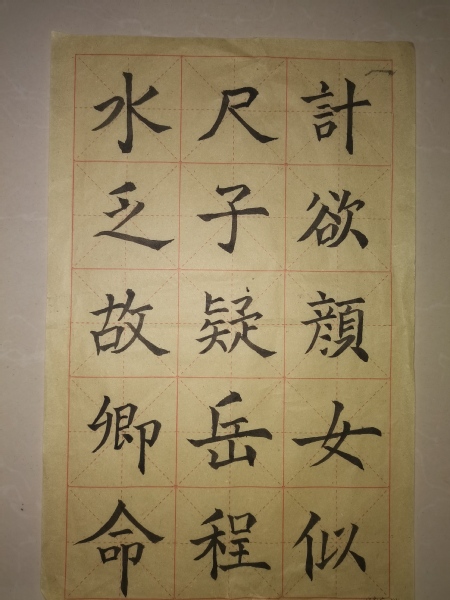 計欲顔女似
尺子疑岳程
水乏故卿命